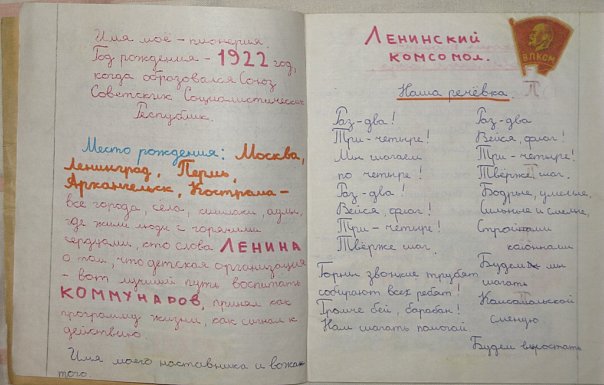 Имя моё - пионерия.
Год рождения - 1922 год,
когда образовался Союз
Советских Социалистических
Республик.
Место рождения: Москва,
Ленинград, Пермь,
Архангельск, Кострома -
все города, села, кишлаки, аулы,
где жили люди с горячими
сердцами, кто слова ЛЕНИНА
о том, что детская организация
- вот лучший путь воспитать
КОММУНАРОВ, принял как
программу жизни, как сигнал к
действию
Имя моего наставника и вожа-
того
ЛЕНИНСКИЙ
КОМСОМОЛ.
ВЛКСМ
Наша речёвка.
Раз-два!
Три-четыре!
Мы шагаем
по четыре!
Раз-два!
Вейся, флаг!
Три-четыре!
Твёрже шаг.
Горны звонкие трубят
собирают всех ребят!
Громче бей, барабан!
Нам шагать помогай
Раз-два
Вейся, флаг!
Три-четыре!
Твёрже, шаг.
Бодрые, умелые.
Сильные и смелые,
Стройными
колоннами
Будем мы
шагать
Комсомольской
сменою
Будем вырастать